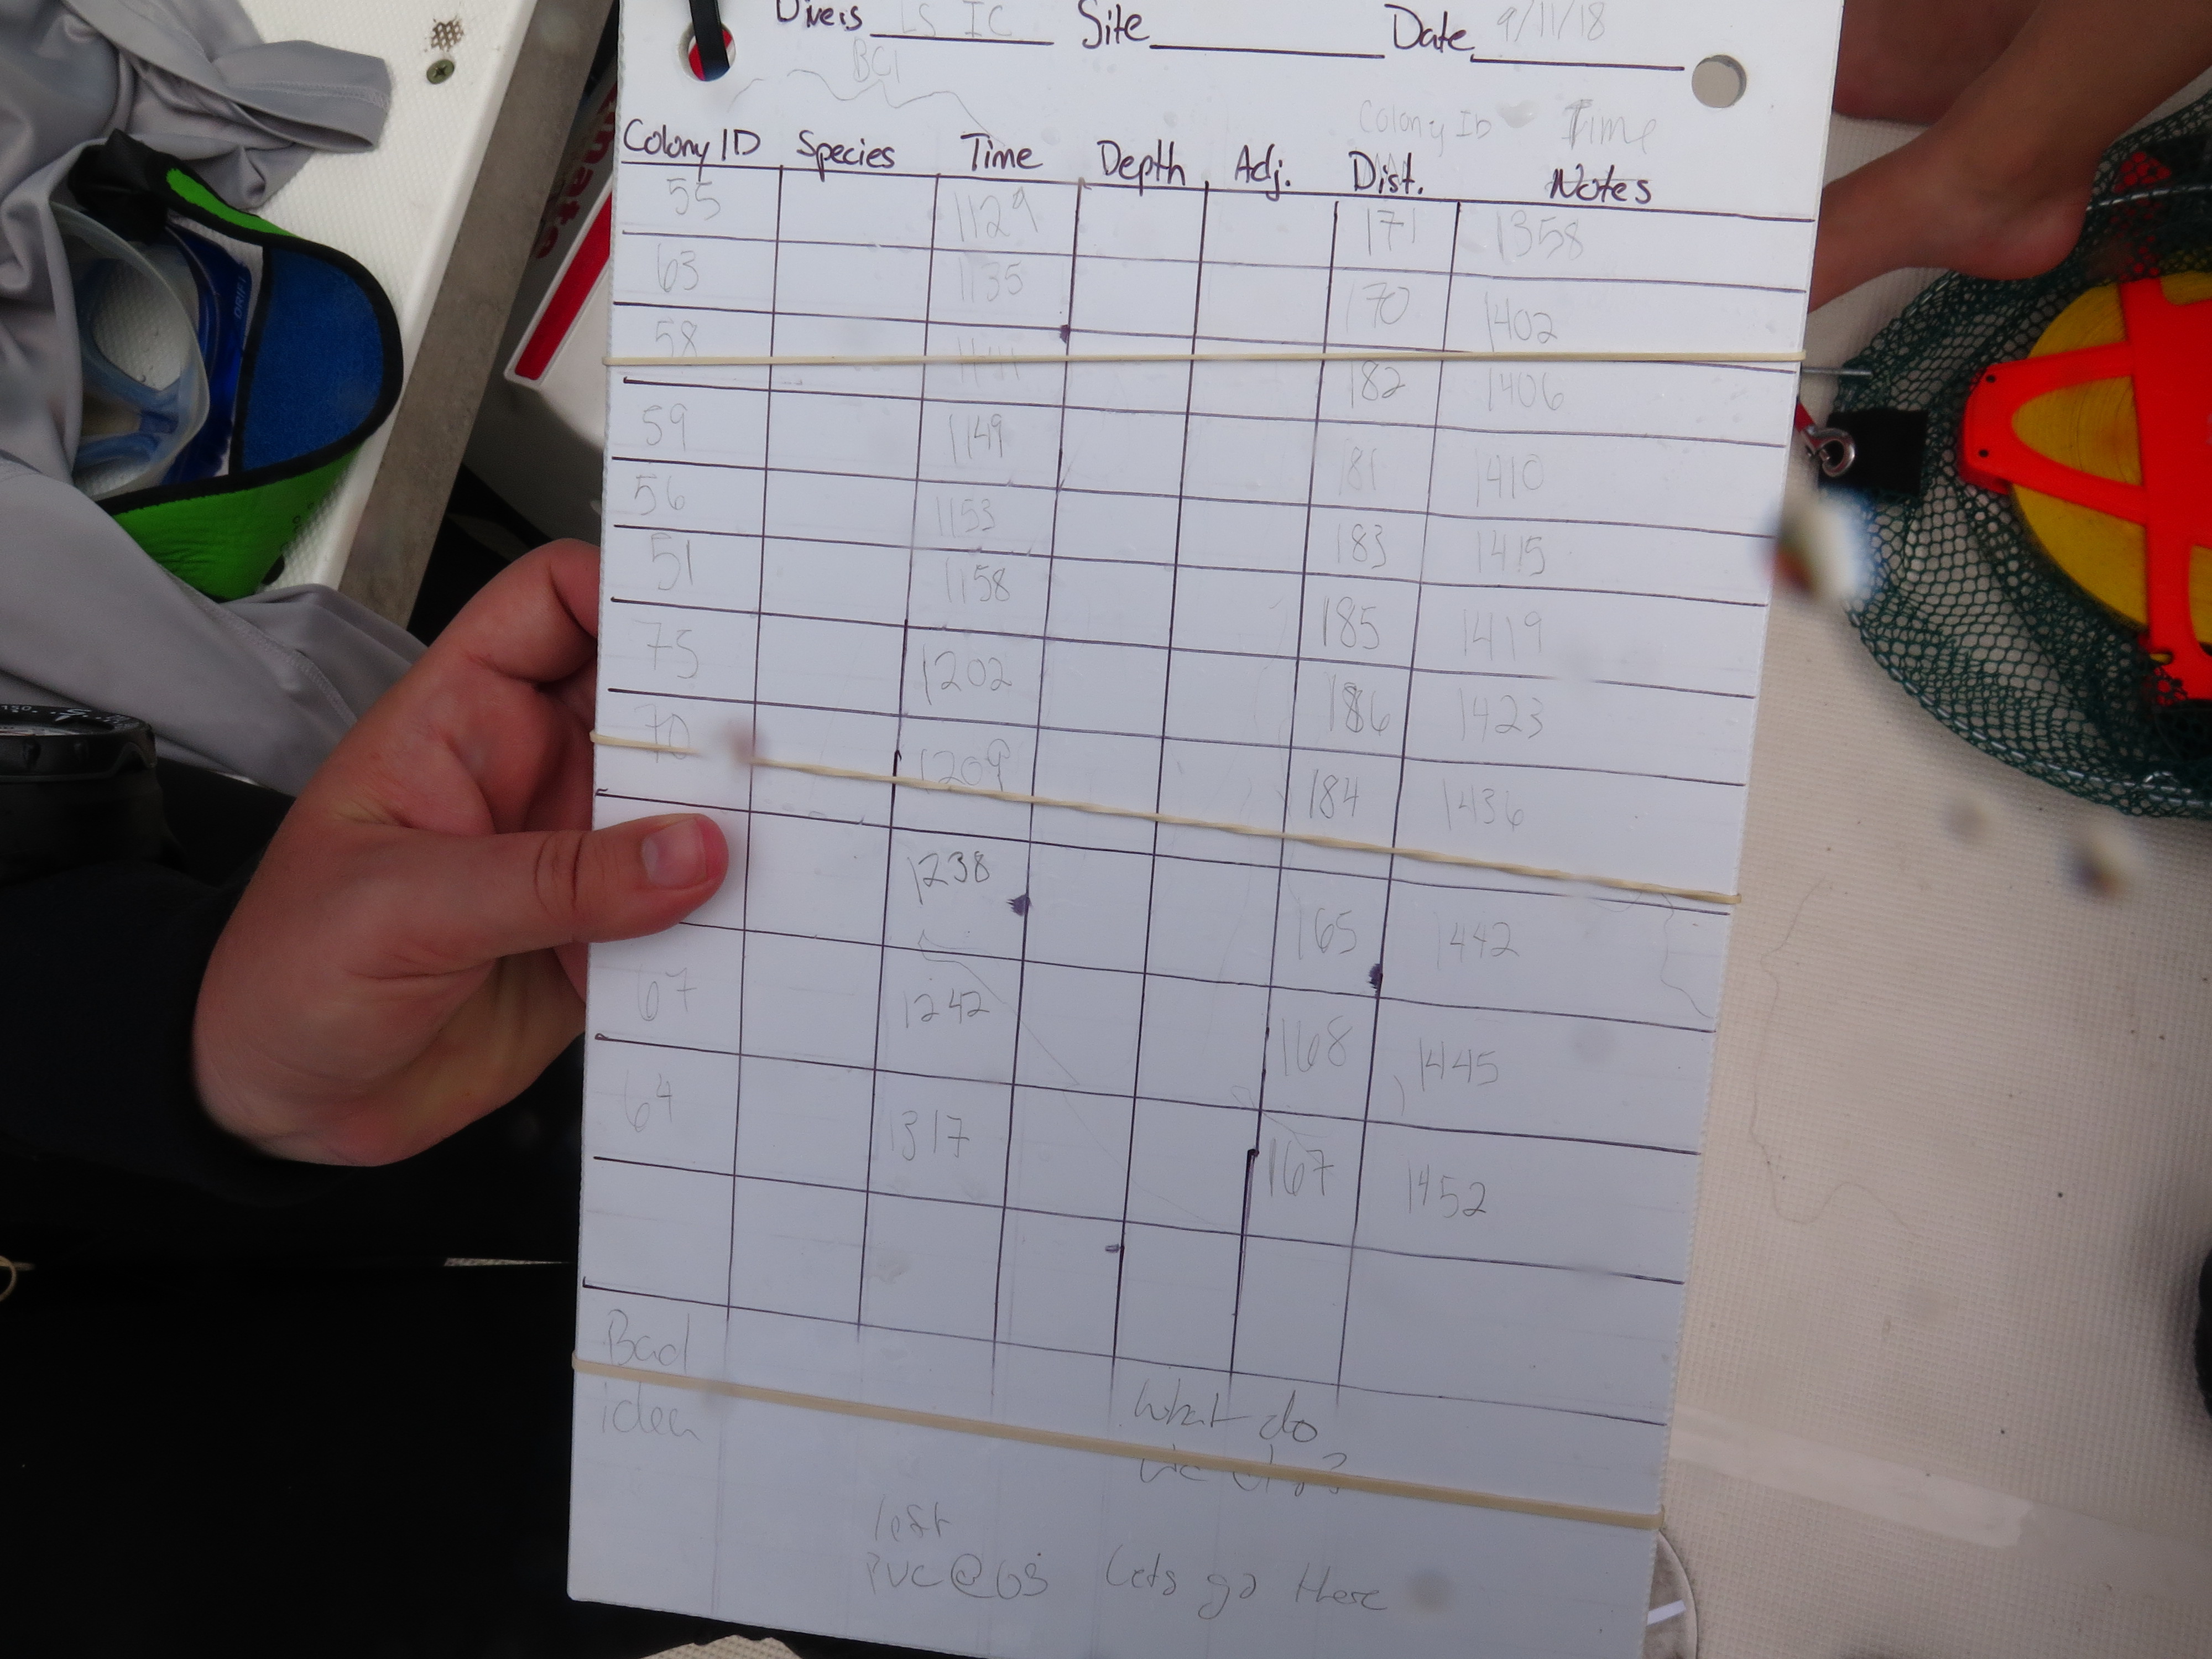 Divers LS IC Site Date 9/11/18
BC1
Colony ID Time
Colony ID Species Time Depth Adj. Dist. Notes
55 1129 171 1358
63 1135 170 1402
58 182 1406
59 1149 181 1410
56 1153 183 1415
51 1158 185 1419
75 1202 186 1423
70 1209 184 1436
1238 165 1442
67 1242 168 1445
64 1317 167 1452
Bad
idea
What do
left
PVC @ 63 Lets go there